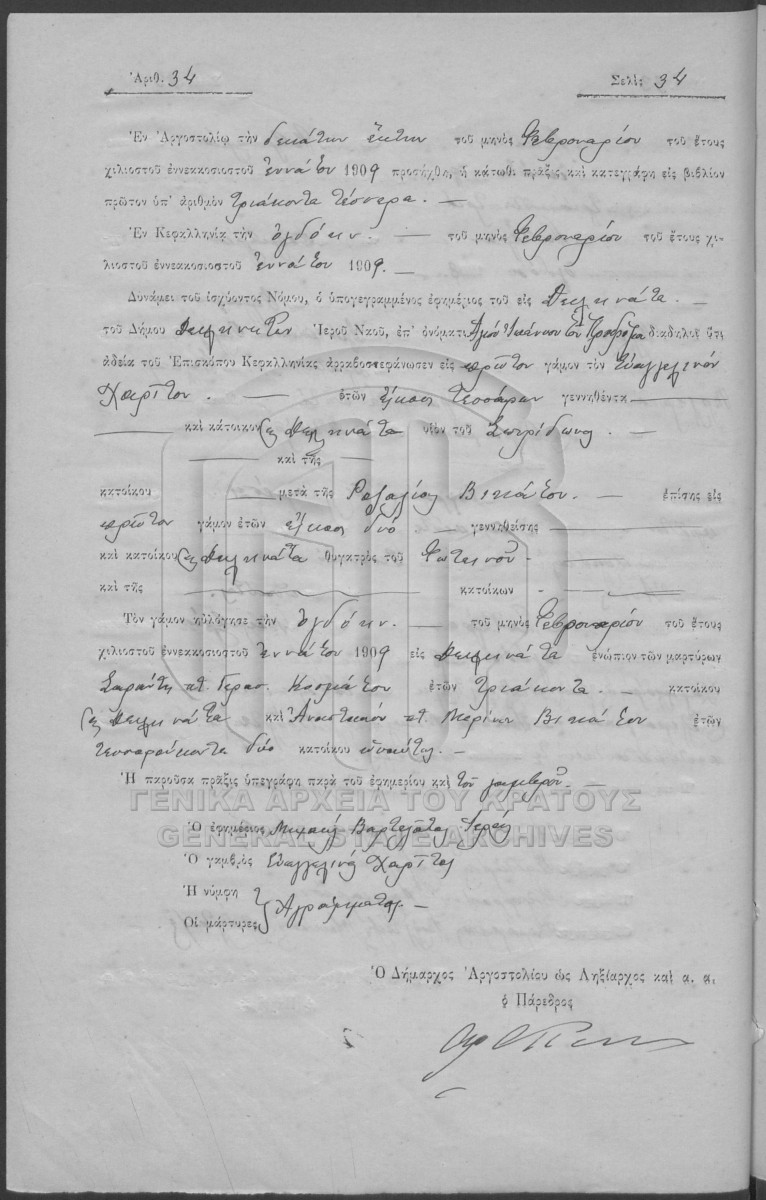 Ἀριθ. 34
Σελὶς 34
Ἐν Ἀργοστολίῳ τὴν δεκάτην ἕκτην τοῦ μηνὸς Φεβρουαρίου τοῦ ἔτους
χιλιοστοῦ ἐννεακοσιοστοῦ ἐννάτου 1909 προσήχθη, ἡ κάτωθι πρᾶξις καὶ κατεγράφη εἰς βιβλίον
πρῶτον ὑπ' ἀριθμὸν τριάκοντα τέσσερα. —
Ἐν Κεφαλληνίᾳ τὴν ὀγδόην. — τοῦ μηνὸς Φεβρουαρίου τοῦ ἔτους χι-
λιοστοῦ ἐννεακοσιοστοῦ ἐννάτου 1909. —
Δυνάμει τοῦ ἰσχύοντος Νόμου, ὁ ὑπογεγραμμένος ἐφημέριος τοῦ εἰς Δειλινάτα. —
τοῦ Δήμου Δειλινάτων Ἱεροῦ Ναοῦ, ἐπ' ὀνόματι Ἁγίου Ἰωάννου τοῦ Προδρόμου διαδηλοῖ ὅτι
ἀδείᾳ τοῦ Ἐπισκόπου Κεφαλληνίας ἀρραβοστεφάνωσεν εἰς πρῶτον γάμον τὸν Εὐαγγελινὸν
Χαρῖτον. — ἐτῶν εἴκοσι τεσσάρων γεννηθέντα —
— καὶ κάτοικον εἰς Δειλινάτα υἱὸν τοῦ Σπυρίδωνος. —
— καὶ τῆς —
κατοίκου — μετὰ τῆς Βικάτου. — ἐπίσης εἰς
πρῶτον γάμον ἐτῶν εἴκοσι δύο — γεννηθείσης —
καὶ κατοίκου εἰς Δειλινάτα θυγατρὸς τοῦ Φωτεινοῦ. —
καὶ τῆς — κατοίκων —
Τὸν γάμον ηὐλόγησε τὴν ὀγδόην. — τοῦ μηνὸς Φεβρουαρίου τοῦ ἔτους
χιλιοστοῦ ἐννεακοσιοστοῦ ἐννάτου 1909 εἰς Δειλινάτα ἐνώπιον τῶν μαρτύρων
Σαράντη ποτ. Γερασ. Κοσμάτου ἐτῶν τριάκοντα. — κατοίκου
εἰς Δειλινάτα καὶ Ἀναστασίου ποτ. Μαρίνου Βικάτου ἐτῶν
τεσσαράκοντα δύο κατοίκου —
Ἡ παροῦσα πρᾶξις ὑπεγράφη παρὰ τοῦ ἐφημερίου καὶ τοῦ γαμβροῦ. —
ΓΕΝΙΚΑ ΑΡΧΕΙΑ ΤΟΥ ΚΡΑΤΟΥΣ
GENERAL STATE ARCHIVES
Ὁ ἐφημέριος Μιχαὴλ Βαρτελάτος Ἱερεὺς
Ὁ γαμβρὸς Εὐαγγελινὸς Χαρῖτος
Ἡ νύμφη
Οἱ μάρτυρες Ἀγράμματοι. —
Ὁ Δήμαρχος Ἀργοστολίου ὡς Ληξίαρχος καὶ α. α.
ὁ Πάρεδρος